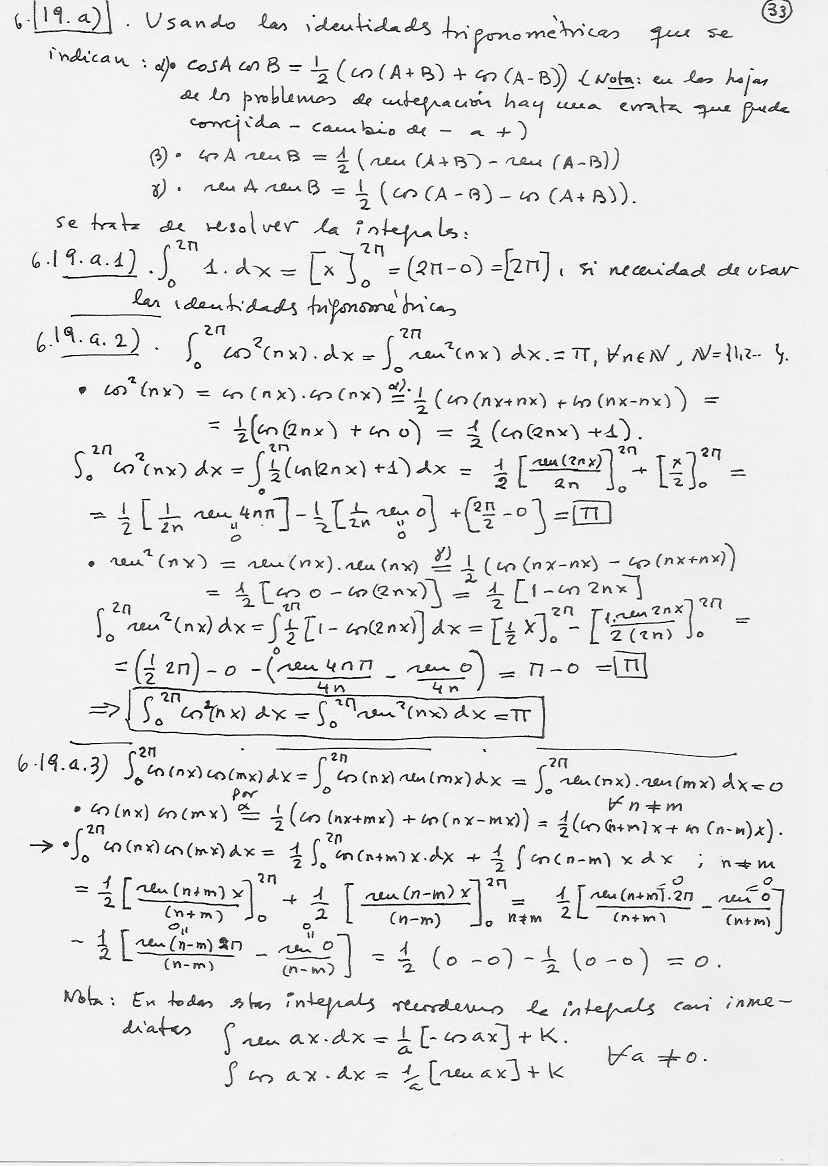 33
6.19.a). Usando las identidads trigonométricas que se
indican: α)• cosA cosB = 1/2 (cos(A+B) + cos(A-B)) (Nota: en las hojas
de los problemas de integración hay una errata que queda
corregida - cambio de - a +)
β)• cosA senB = 1/2 (sen(A+B) - sen(A-B))
γ)• senA senB = 1/2 (cos(A-B) - cos(A+B)).
se trata de resolver la integrals:
6.19.a.1). ∫₀^{2π} 1.dx = [x]₀^{2π} = (2π-0) = [2π], si necesidad de usar
las identidads trigonométricas
6.19.a.2). ∫₀^{2π} cos²(nx).dx = ∫₀^{2π} sen²(nx) dx. = π, ∀n∈N, N={1,2...}.
• cos²(nx) = cos(nx).cos(nx) =^{α)} 1/2 (cos(nx+nx) + cos(nx-nx)) =
= 1/2 (cos(2nx) + cos 0) = 1/2 (cos(2nx) + 1).
∫₀^{2π} cos²(nx) dx = ∫₀^{2π} 1/2 (cos(2nx) + 1) dx = 1/2 [sen(2nx)/2n]₀^{2π} + [x/2]₀^{2π} =
= 1/2 [1/2n sen 4nπ] - 1/2 [1/2n sen 0] + (2π/2 - 0) = π
= 0 = 0
• sen²(nx) = sen(nx).sen(nx) =^{γ)} 1/2 (cos(nx-nx) - cos(nx+nx))
= 1/2 [cos 0 - cos(2nx)] = 1/2 [1 - cos 2nx]
∫₀^{2π} sen²(nx) dx = ∫₀^{2π} 1/2 [1 - cos(2nx)] dx = [1/2 x]₀^{2π} - [1.sen 2nx/2(2n)]₀^{2π} =
= (1/2 2π) - 0 - (sen 4nπ/4n - sen 0/4n) = π - 0 = π
⇒ ∫₀^{2π} cos²(nx) dx = ∫₀^{2π} sen²(nx) dx = π
6.19.a.3) ∫₀^{2π} cos(nx) cos(mx) dx = ∫₀^{2π} cos(nx) sen(mx) dx = ∫₀^{2π} sen(nx).sen(mx) dx = 0
∀ n ≠ m
• cos(nx) cos(mx) =^{por α} 1/2 (cos(nx+mx) + cos(nx-mx)) = 1/2 (cos(n+m)x + cos(n-m)x).
→ • ∫₀^{2π} cos(nx) cos(mx) dx = 1/2 ∫₀^{2π} cos(n+m)x.dx + 1/2 ∫ cos(n-m) x dx ; n≠m
= 1/2 [sen(n+m)x/(n+m)]₀^{2π} + 1/2 [sen(n-m)x/(n-m)]₀^{2π} =_{n≠m} 1/2 [sen(n+m).2π/(n+m) - sen 0/(n+m)]
= 0 = 0
- 1/2 [sen(n-m)2π/(n-m) - sen 0/(n-m)] = 1/2 (0-0) - 1/2 (0-0) = 0.
Nota: En todas estas integrals recordemos la integrals casi inme-
diatas ∫ sen ax.dx = 1/a [-cos ax] + K.
∀a ≠ 0.
∫ cos ax.dx = 1/a [sen ax] + K